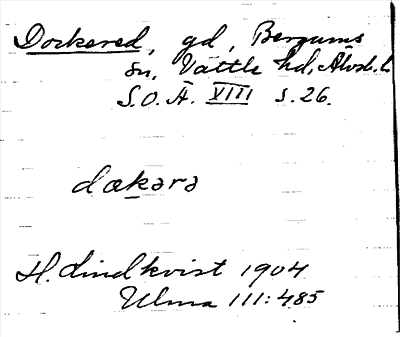 Dockered, gd, Bergums
sn, Vättle hd, Älvsb. l.
S.O.Ä. XVIII s. 26.
dækərə
H. Lindkvist 1904
Ulma 111:485